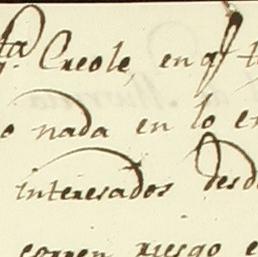 Creole, en qᵉ
nada en lo
interesados desd
corren riesgo e